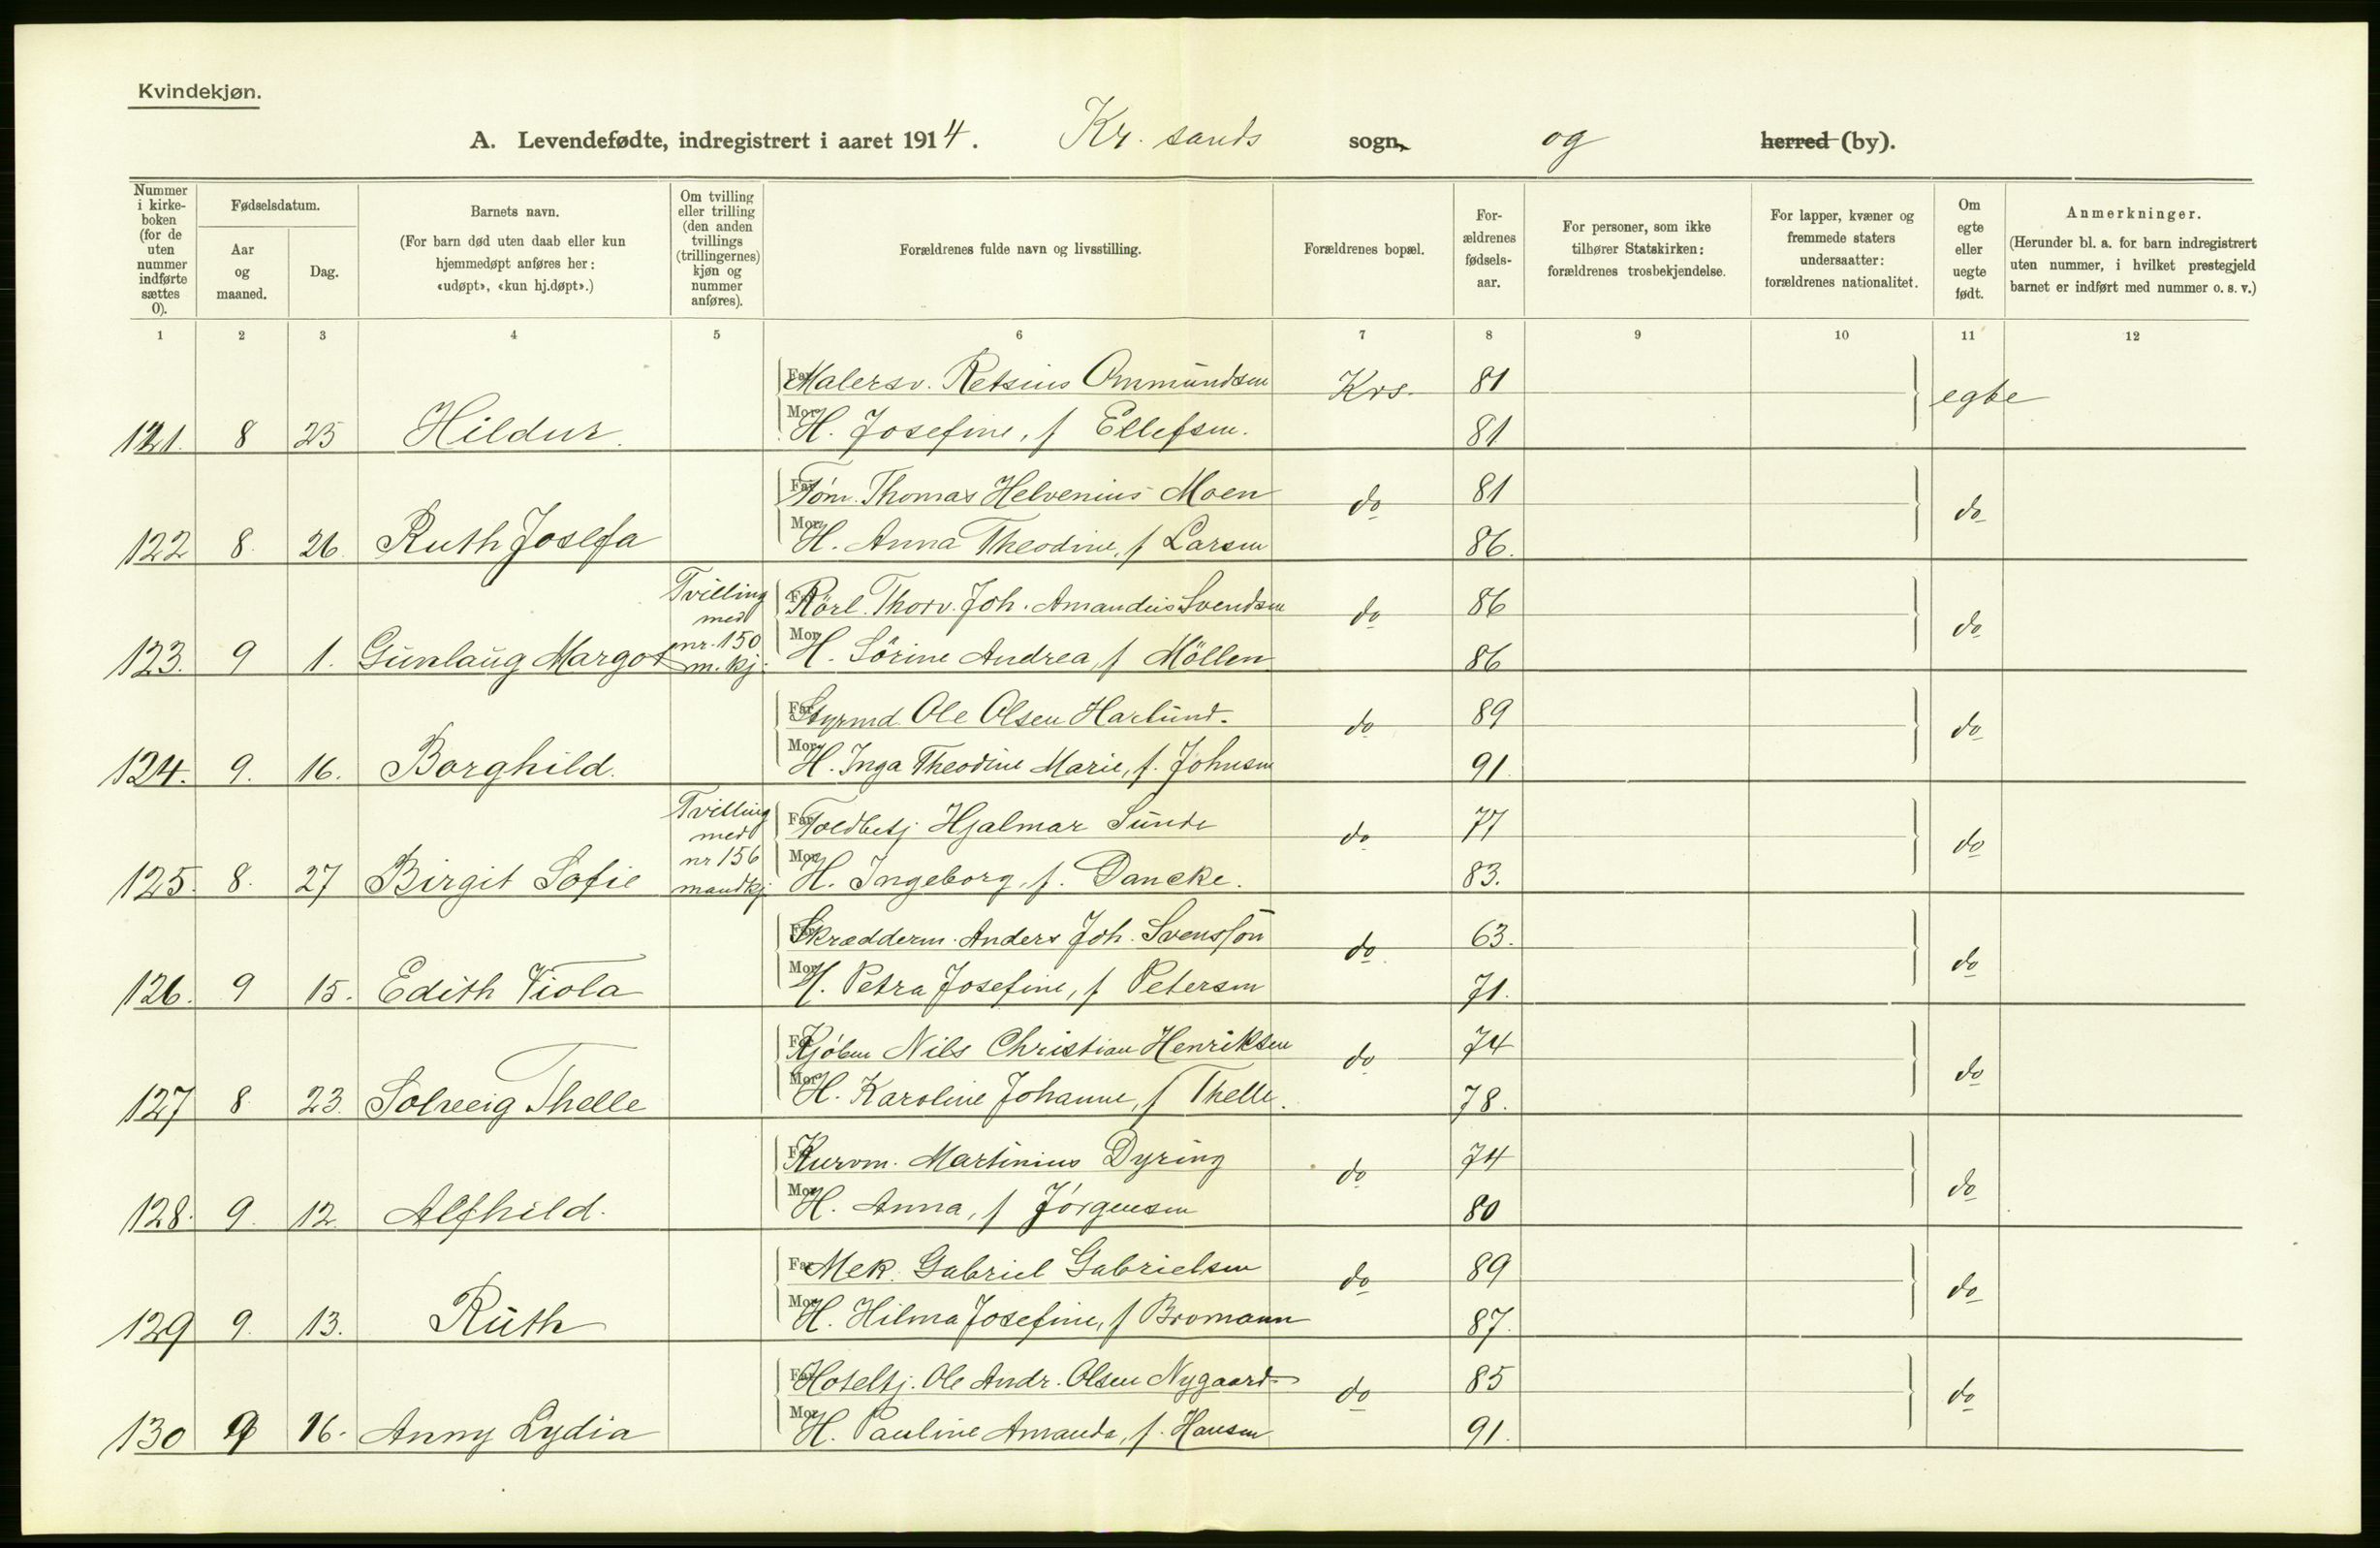 Kvindekjøn.
A. Levendefødte, indregistrert i aaret 1914. Kr. sands sogn, og herred (by).
Nummer i kirke-boken (for de uten nummer indførte sættes 0).
Fødselsdatum.
Aar og maaned.
Dag.
Barnets navn.
(For barn død uten daab eller kun hjemmedøpt anføres her: «udøpt», «kun hj.døpt».)
Om tvilling eller trilling (den anden tvillings (trillingernes) kjøn og nummer anføres).
Forældrenes fulde navn og livsstilling.
Forældrenes bopæl.
For-ældrenes fødsels-aar.
For personer, som ikke tilhører Statskirken: forældrenes trosbekjendelse.
For lapper, kvæner og fremmede staters undersaatter: forældrenes nationalitet.
Om egte eller uegte født.
Anmerkninger.
(Herunder bl. a. for barn indregistrert uten nummer, i hvilket prestegjeld barnet er indført med nummer o. s. v.)
1 2 3 4 5 6 7 8 9 10 11 12
Far Malersv. Retsius Ommundsen Krs. 81 egte
121. 8 25 Hildur. Mor H. Josefine, f Ellefsen. 81
Far Tøm. Thomas Helvenius Moen do 81 do
122 8. 26. Ruth Josefa Mor H. Anna Theodine, f Larsen 86.
Tvilling med nr. 150 m. kj. Far Rörl. Thorv. Joh. Amandus Svendsen do 86 do
123. 9 1. Gunlaug Margot Mor H. Sörine Andrea, f Möllen 86
Far Styrmd. Ole Olsen Harlund. do 89 do
124. 9. 16. Borghild. Mor H. Inga Theodine Marie, f. Johnsen 91.
Tvilling med nr 156 mandkj Far Toldbetj Hjalmar Sunde do 77 do
125. 8. 27 Birgit Sofie Mor H. Ingeborg, f. Dancke. 83.
Far Skrædderm. Anders Joh. Svensson do. 63. do
126. 9 15. Edith Viola Mor H. Petra Josefine, f Petersen 71.
Far Kjøbm Nils Christian Henriksen do 74 do
127 8 23. Solveig Thelle Mor H. Karoline Johanne, f Thelle. 78.
Far Kurvm. Martinius Dyring do 74 do
128. 9. 12. Alfhild. Mor H. Anna, f Jörgensen 80
Far Mek. Gabriel Gabrielsen do 89 do
129 9. 13. Ruth Mor H. Hilma Josefine, f Bromann 87.
Far Hoteltj. Ole Andr. Olsen Nygaard do 85 do
130 9 16. Anny Lydia Mor H. Pauline Amanda, f. Hansen 91.